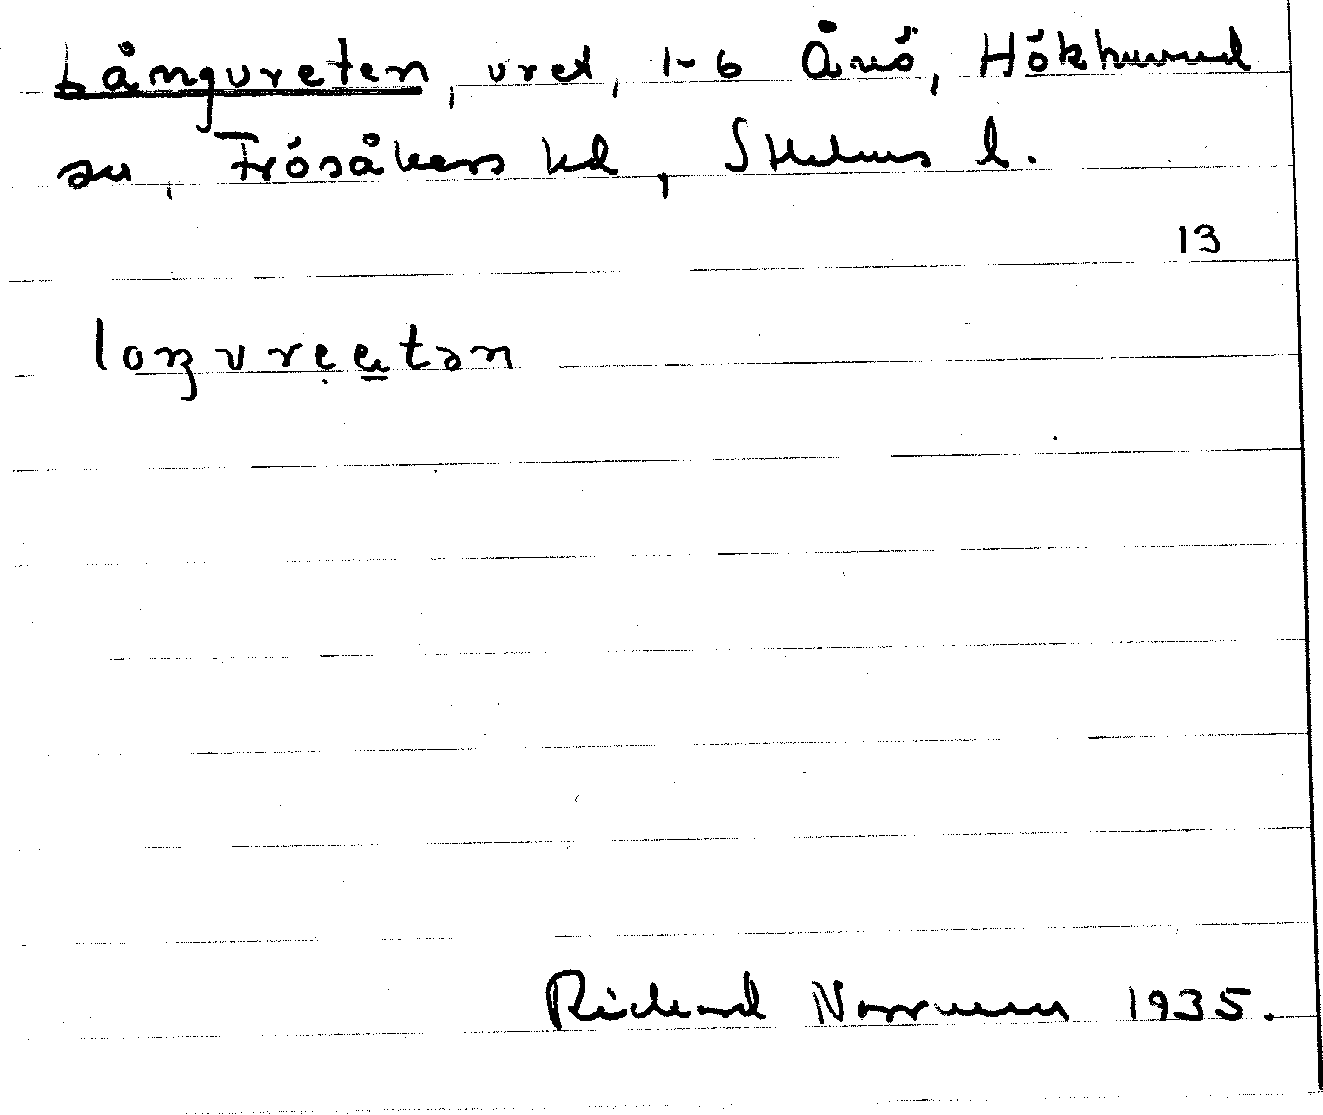 Långvreten, vret, 1-6 Ånö, Hökhuvud
sn, Frösåkers hd, Sthlms l.
13
loŋvreetən
Richard Norrman 1935.